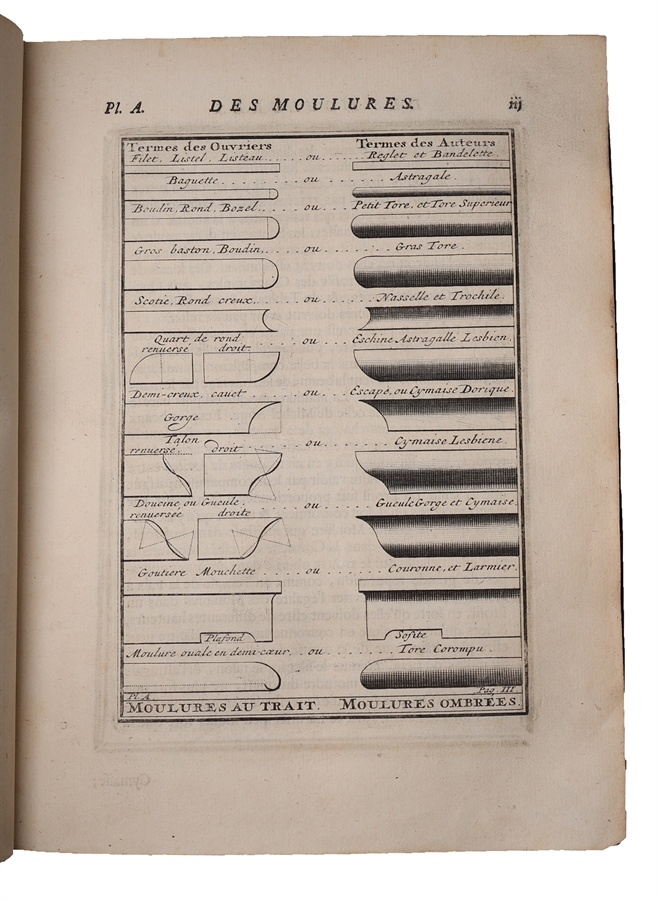 Pl. A. DES MOULURES. iij
Termes des Ouvriers Termes des Auteurs
Filet, Listel, Listeau..... ou ... Reglet et Bandelette.
Baguette......... ou ...... Astragale.
Boudin, Rond, Bozel..... ou .... Petit Tore, et Tore Superieur
Gros baston, Boudin,.... ou ....... Gras Tore.
Scotie, Rond creux,..... ou ...... Nasselle et Trochile.
Quart de rond ..... ou .... Eschine Astragalle Lesbien.
renuersé droit.
Demi-creux, cauet .... ou ... Escape, ou Cymaise Dorique.
Gorge
Talon ..... ou ....... Cymaise Lesbiene.
renuersé. droit
Doucine ou Gueule, .... ou ...... Gueule Gorge et Cymaise.
renuersée droite
Goutiere Mouchette .... ou ...... Couronne, et Larmier.
Plafond Sofite
Moulure ouale en demi-cœur.. ou ...... Tore Corompu.
Pl. A. Pag. III
MOULURES AU TRAIT. MOULURES OMBRÉES.